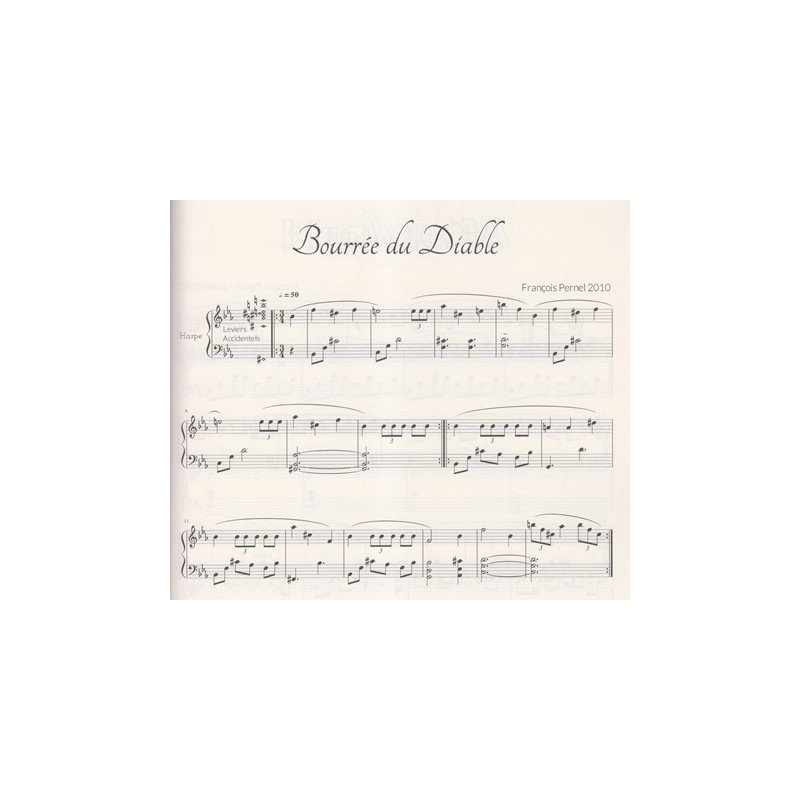 Bourrée du Diable
François Pernel 2010
♩. = 50
Harpe
Leviers
Accidentels
3
4
3
4
3
3
3
3
11
3
3
3
3